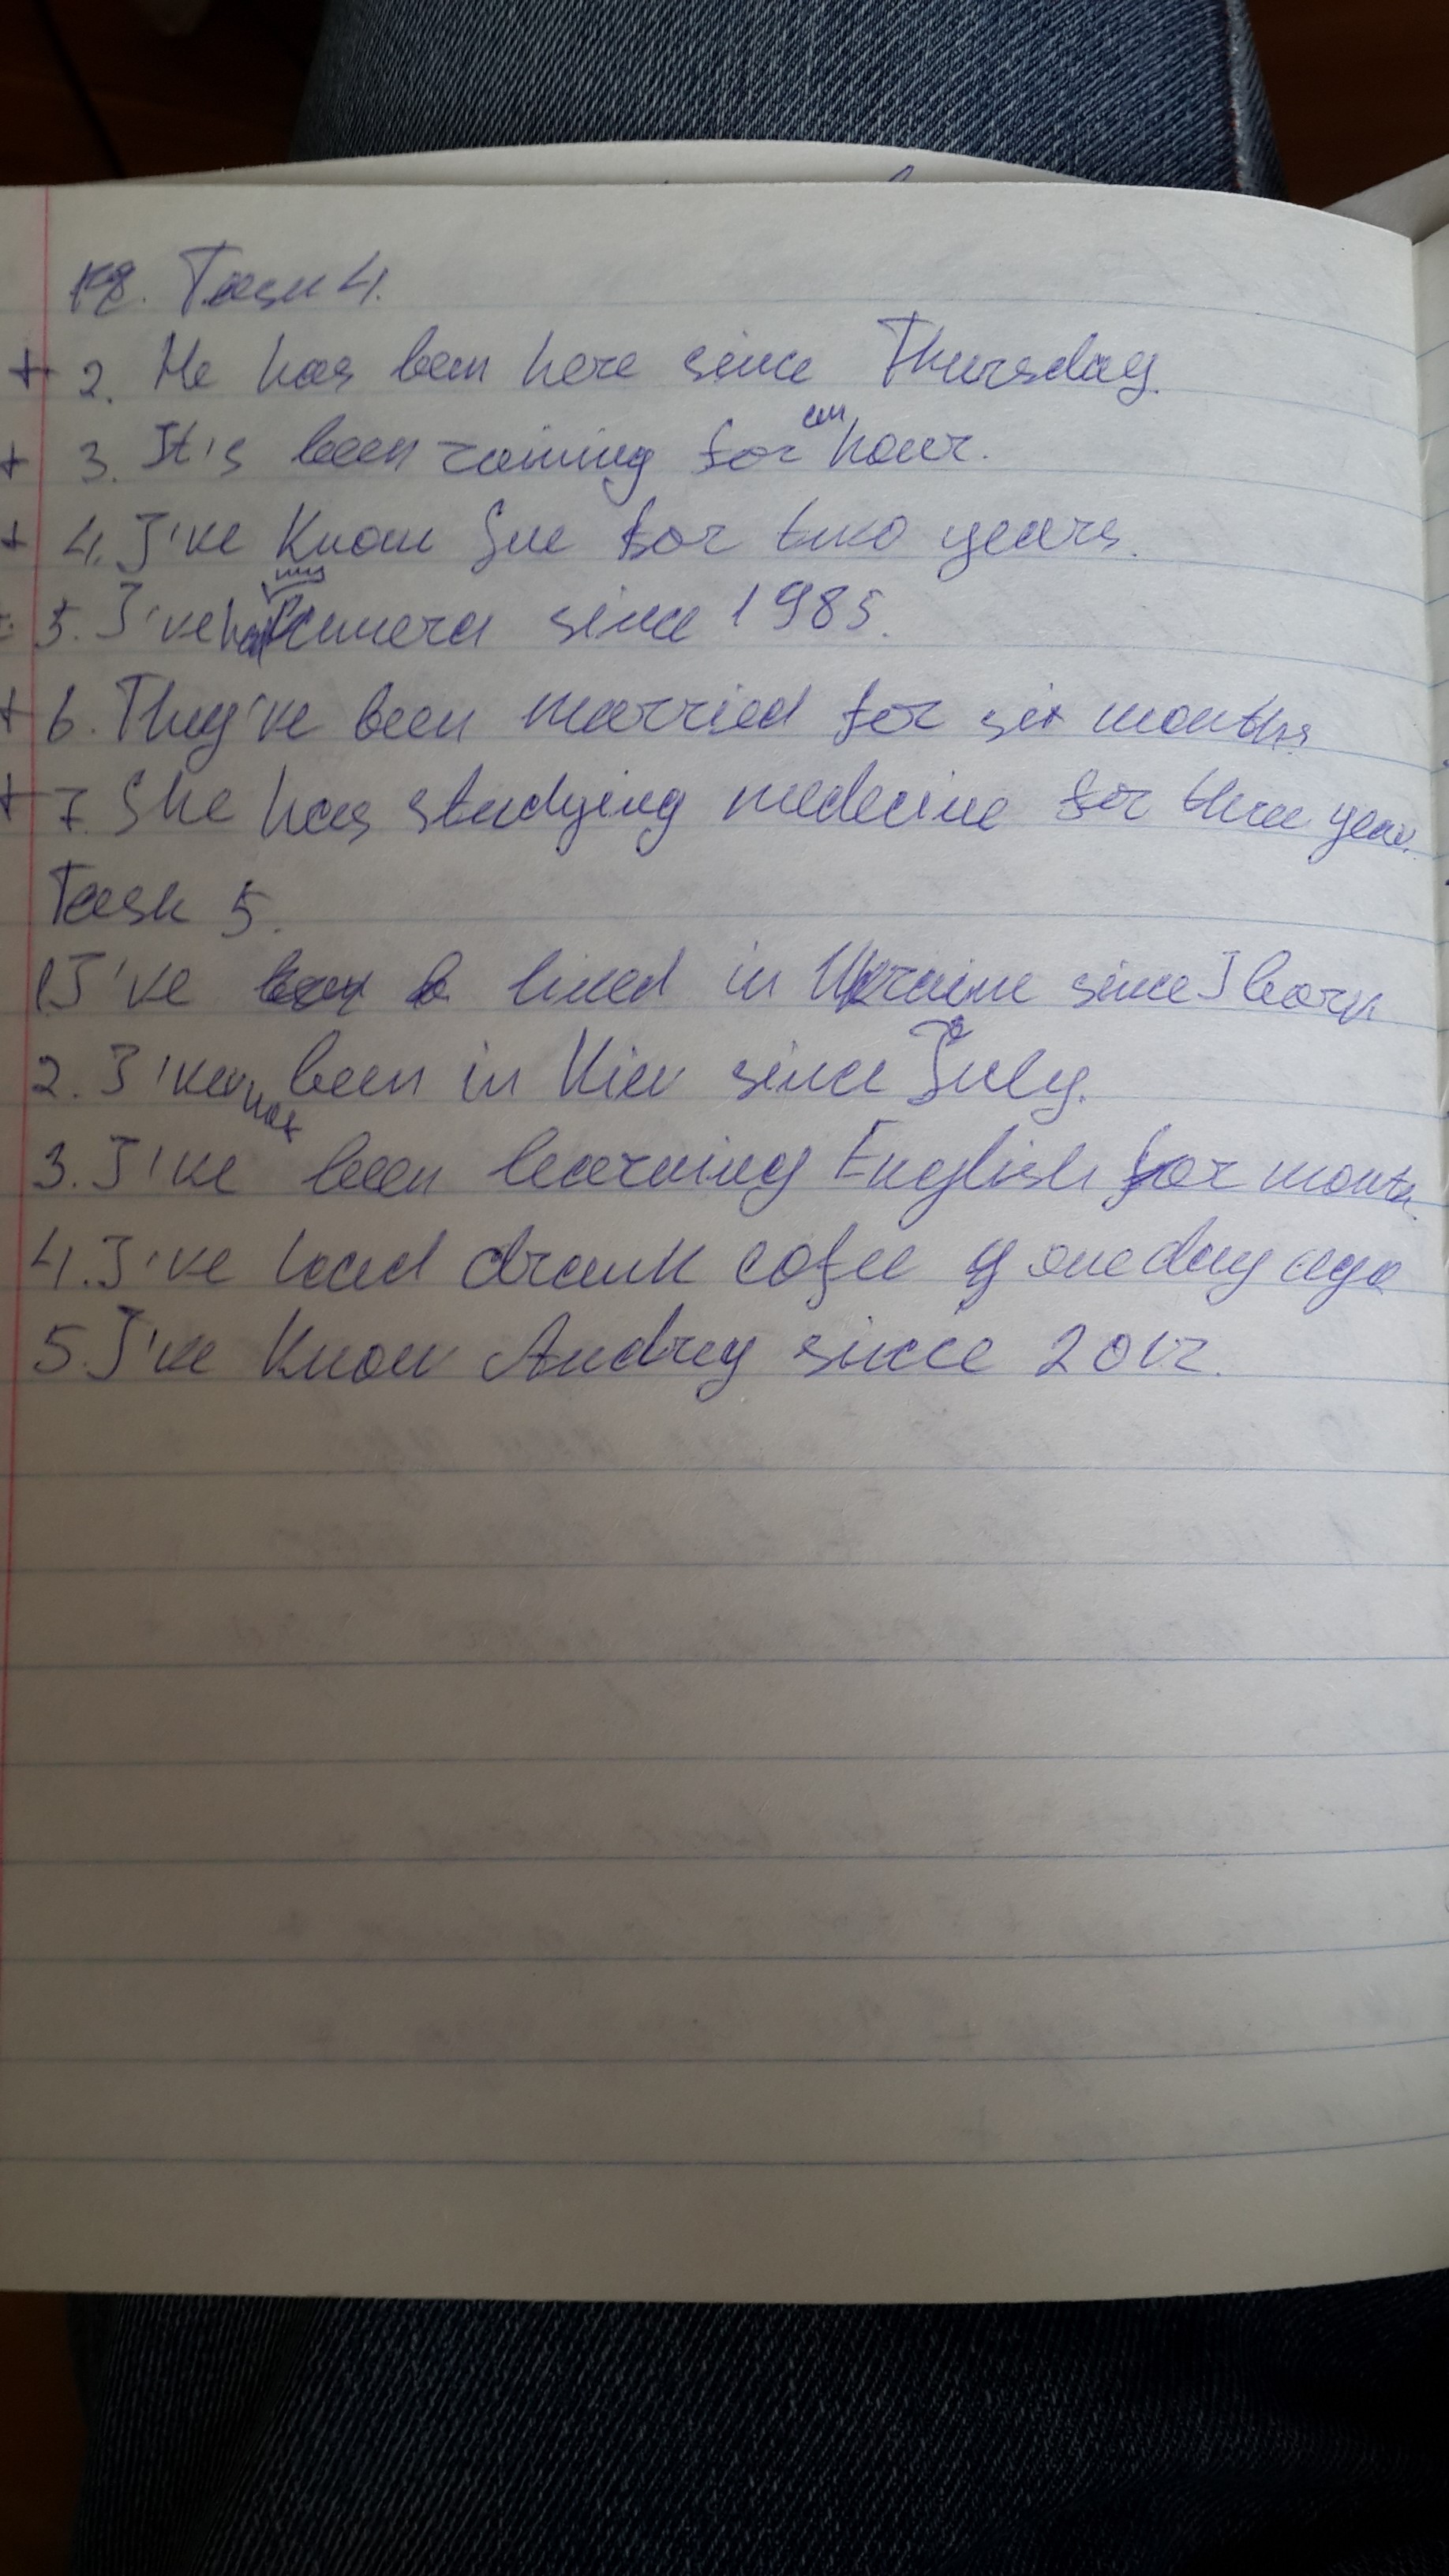 Task 4.
+ 2. He has been here since Thursday.
+ 3. It's been raining for an hour.
+ 4. I've know Sue for two years.
5. I've had my camera since 1985.
+ 6. They've been married for six months
+ 7. She has studying medecine for three year.
Task 5.
1 I've lived in Ukraine since I born
2. I've not been in Kiev since July.
3. I've been learning English for month.
4. I've had drank cofee one day ago
5 I've know Andrey since 2012.